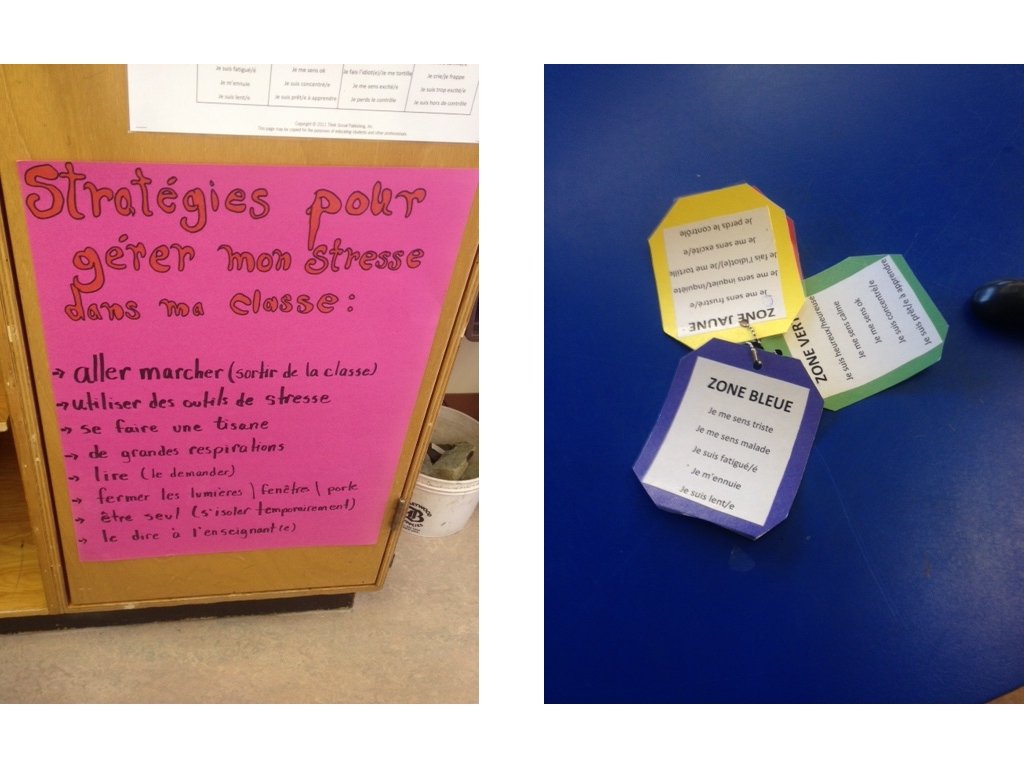 Je suis fatigué/é
Je me sens ok
Je fais l'idiot(e)/Je me tortille
Je crie/je frappe
Je m'ennuie
Je suis concentré/e
Je me sens excité/e
Je suis trop excité/e
Je suis lent/e
Je suis prêt/e à apprendre
Je perds le contrôle
Je suis hors de contrôle
Copyright © 2011 Think Social Publishing, Inc.
This page may be copied for the purposes of educating students and other professionals.
Stratégies pour
gérer mon stresse
dans ma classe :
→ aller marcher (sortir de la classe)
→ utiliser des outils de stresse
→ se faire une tisane
→ de grandes respirations
→ lire (le demander)
→ fermer les lumières \ fenêtres \ porte
→ être seul (s'isoler temporairement)
→ le dire à l'enseignant(e)
ZONE JAUNE
Je me sens frustré/e
Je me sens inquiet/inquiète
Je fais l'idiot(e)/Je me tortille
Je me sens excité/e
Je perds le contrôle
ZONE VER
Je suis heureux/heureuse
Je me sens calme
Je me sens ok
Je suis concentré/e
Je suis prêt/e à apprendre
ZONE BLEUE
Je me sens triste
Je me sens malade
Je suis fatigué/é
Je m'ennuie
Je suis lent/e